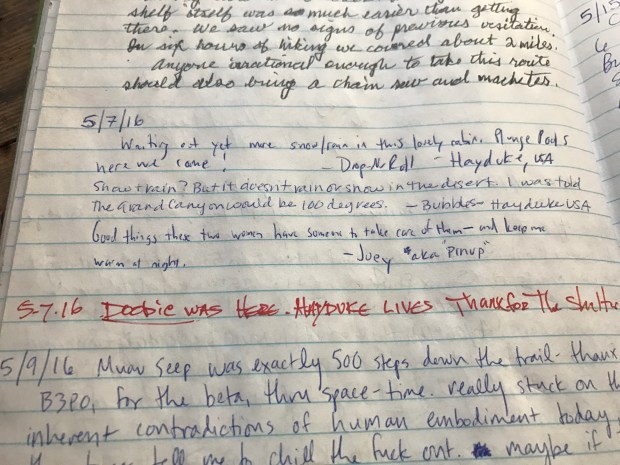 shelf itself was so much easier than getting
there. We saw no signs of previous visitation.
In six hours of hiking we covered about 2 miles.
Anyone irrational enough to take this route
should also bring a chain saw and machetes.
5/15
5/7/16
Waiting out yet more snow/rain in this lovely cabin. Plunge Pools
here we come! - Drop-N-Roll - Hayduke, USA
Snow+rain? But it doesn't rain or snow in the desert. I was told
The Grand Canyon would be 100 degrees. - Bubbles - Hayduke USA
Good things these two women have someone to take care of them - and keep me
warm at night. - Joey *aka "Pinup"
5.7.16 Doobie was Here. HAYDUKE LIVES Thank for The
5/9/16 Muav Seep was exactly 500 steps down the trail - thanx
B3PO, for the beta, thru space-time. really stuck on th
inherent contradictions of human embodiment today
tell me to chill the fuck out. maybe if